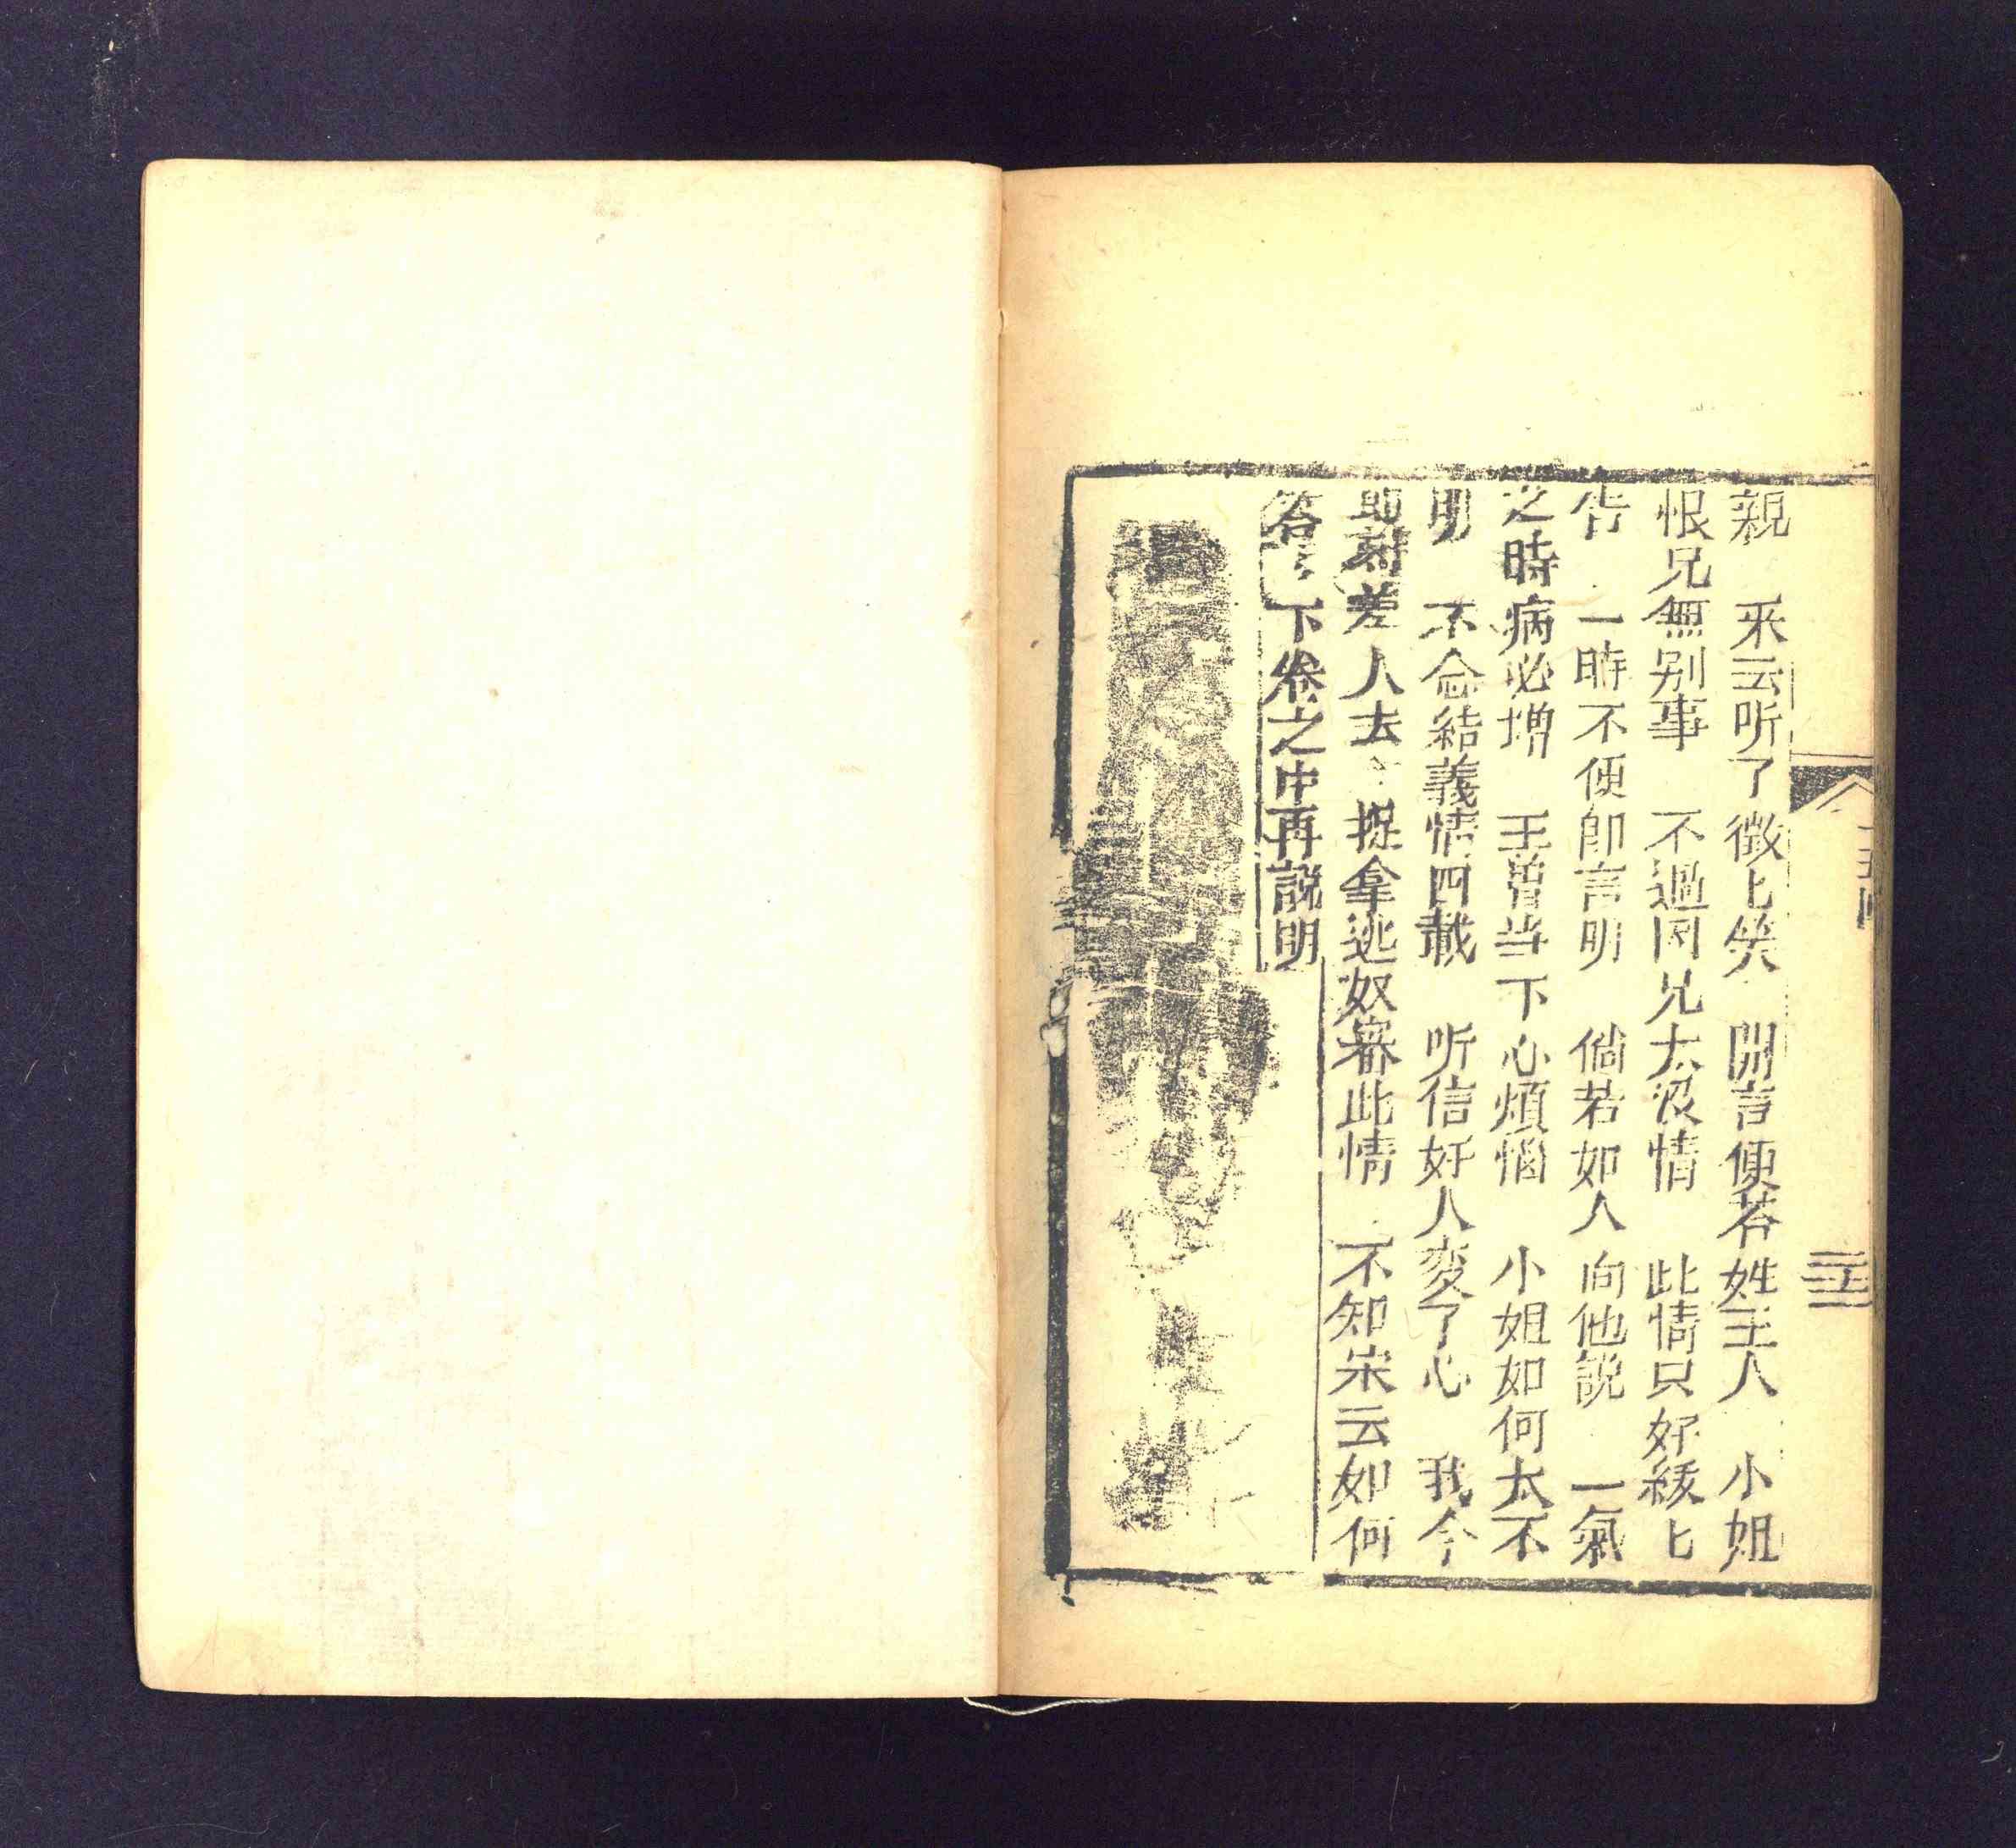 親　采云听了微匕笑　開言便若姓王人　小姐
恨兄無别事　不過因兄太没情　此情只好緩匕
告　一時不便即言明　倘若如人向他説　一氣
之時病必增　王曾当下心煩惱　小姐如何太不
明　不念結義情四載　听信奸人変了心　我今
即刻差人去　捉拿逃奴審此情　不知宋云如何
答　下卷之中再説明